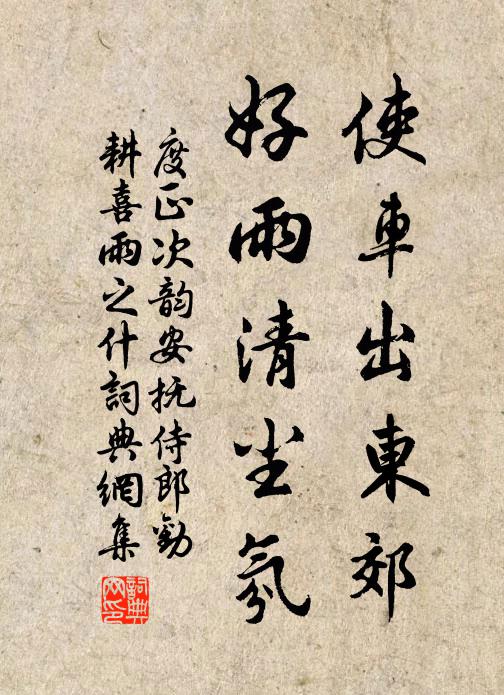 使車出東郊
好雨清尘氛
度正次韵安抚侍郎勸
耕喜雨之什詞典網集
詞典
网印